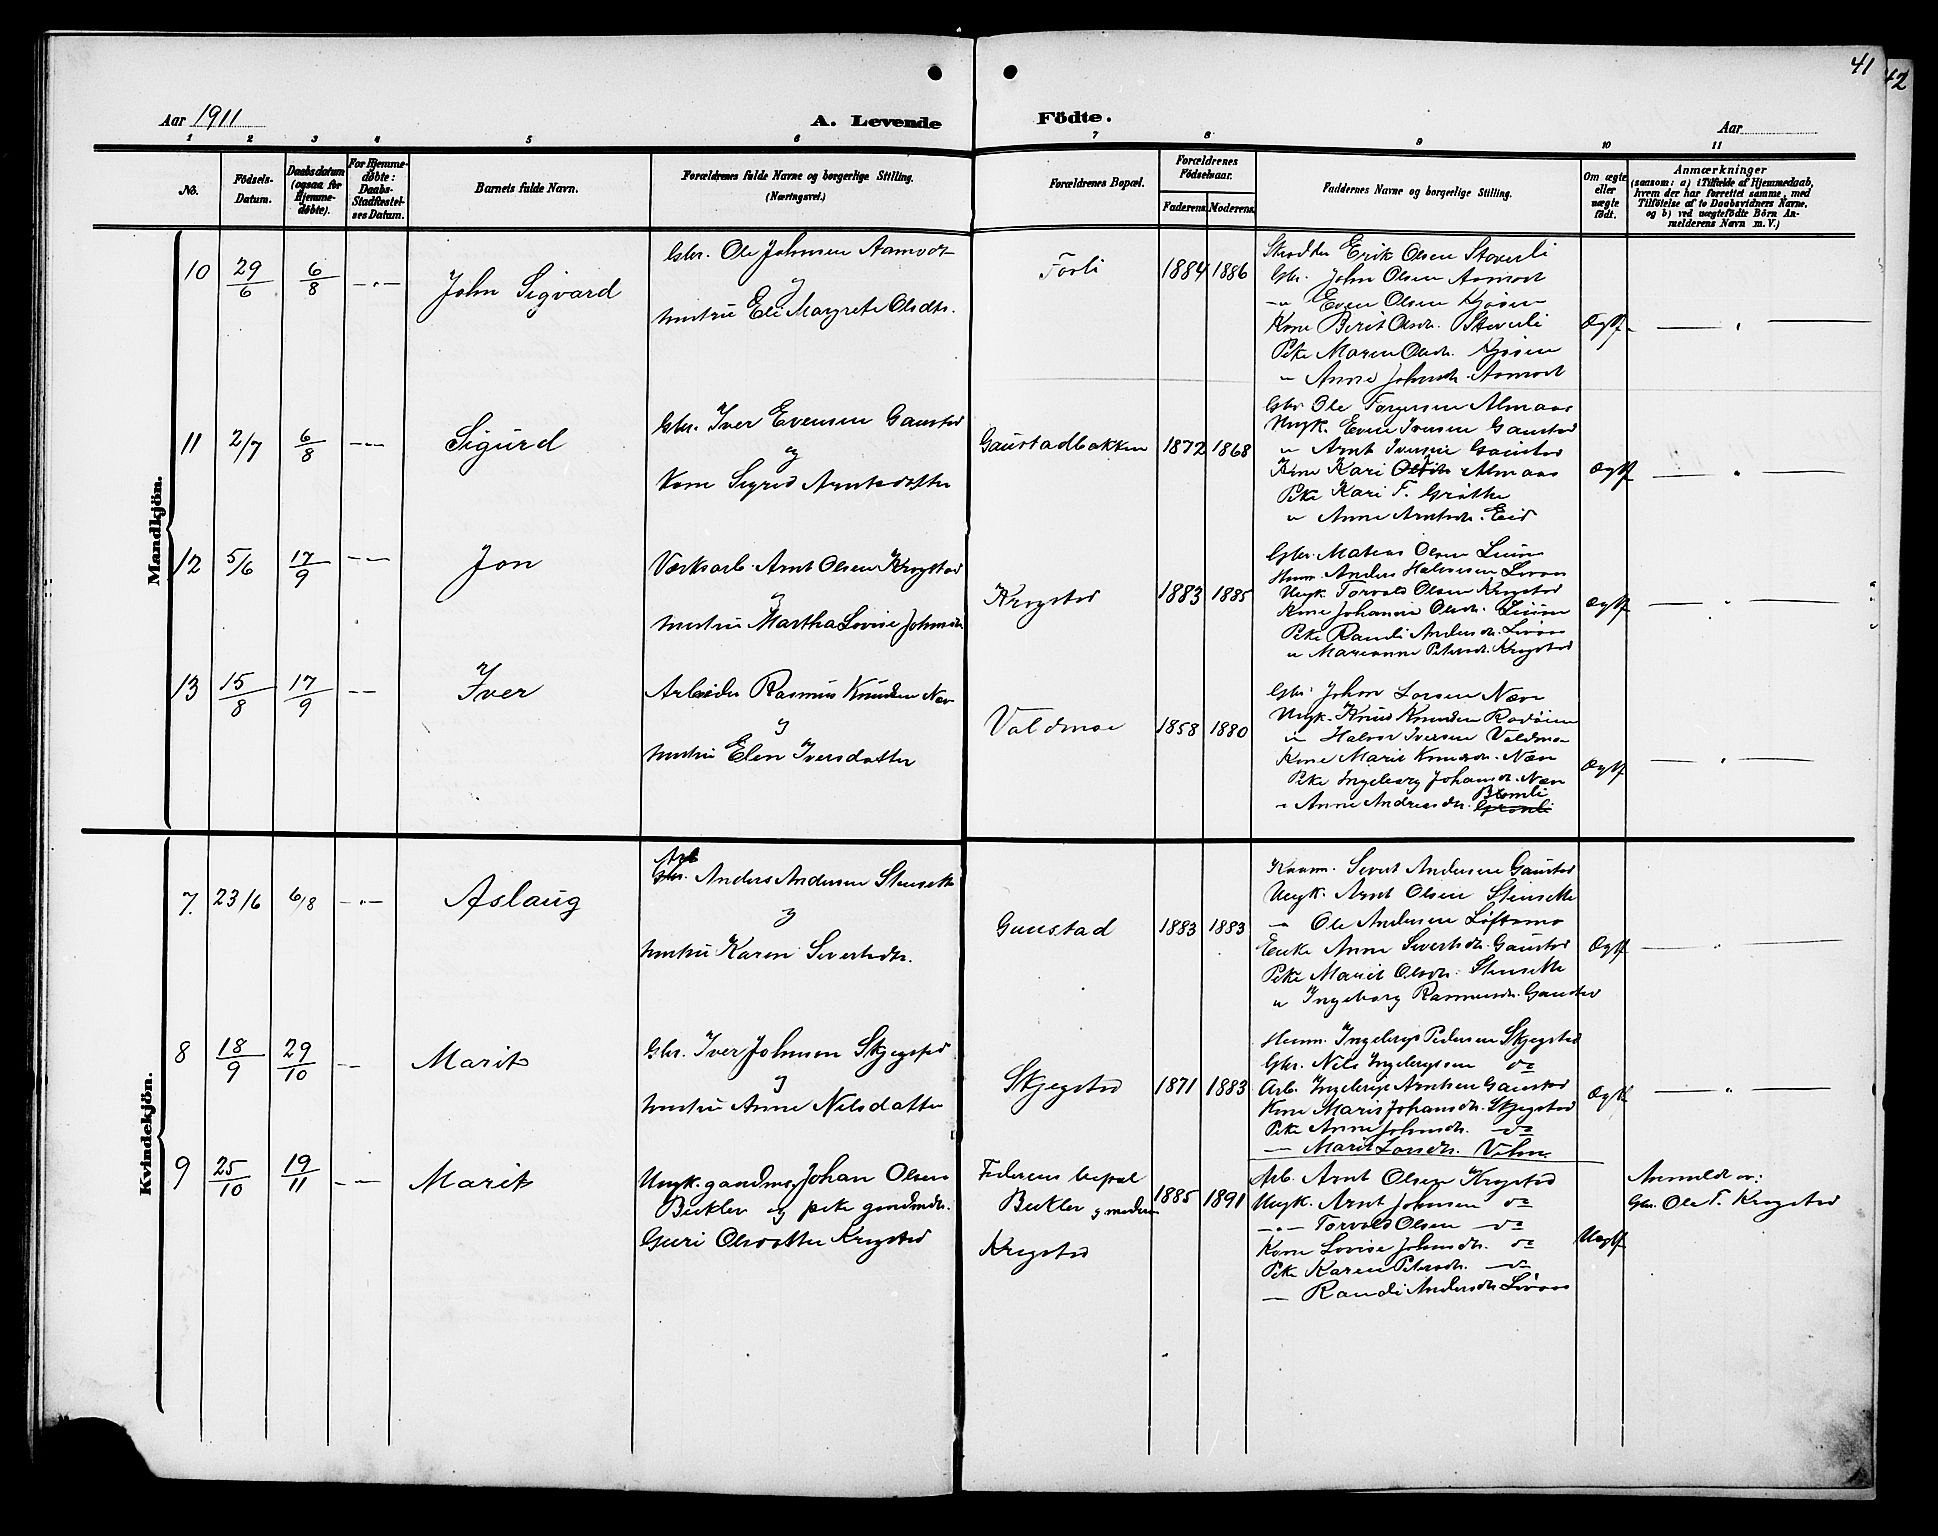 41
42
Aar 1911
A. Levende Födte.
Aar
1 2 3 4 5 6 7 8 9 10 11
No.
Födsels-
Datum.
Daabsdatum
(ogsaa för
Hjemme-
döbte).
For Hjemme-
döbte:
Daabs-
Stadfæstel-
ses Datum.
Barnets fulde Navn.
Forældrenes fulde Navne og borgerlige Stilling.
(Næringsvei.)
Forældrenes Bopæl.
Forældrenes
Födselsaar.
Faderens. Moderens.
Faddernes Navne og borgerlige Stilling.
Om ægte
eller
uægte
födt.
Anmærkninger
(saasom: a) i Tilfælde af Hjemmedaab,
hvem der har forrettet samme, med
Tilföielse af to Daabsvidners Navne,
og b) ved uægtefödte Börn An-
melderens Navn m. V.)
Mandkjön.
10 29/6 6/8 —"— John Sigvard
Gbr. Ole Johnsen Aamodt
og
hustru Eli Margrete Olsdtr.
Forli 1884 1886
Skrædder Erik Olsen Stoverli
Gbr. John Olsen Aamodt
—" Even Olsen Kjøsen
Kone Berit Olsdr. Stoverli
Pike Maren Olsdr. Kjøsen
— Anne Johnsdr. Aamodt
Ægtf — " —
11 2/7 6/8 —"— Sigurd
Gbr. Iver Evensen Gaustad
og
Kone Sigrid Arntsdatter
Gaustadbakken 1872 1868
Gbr Ole Torgersen Almaas
Ungk. Even Iversen Gaustad
" Arnt Iversen Gaustad
Kone Kari Olsdtr Almaas
Pike Kari F. Grøthe
" Anne Arntsdr. Eid
Ægtf — " —
12 5/6 17/9 —"— Jon
Værksarb. Arnt Olsen Krogstad
og
hustru Martha Lovise Johnsdr
Krogstad 1883 1885
Gbr. Matias Olsen Lium
Husm. Anders Halvorsen Livaas
Ungk. Torvald Olsen Krogstad
Kone Johanne Olsdr. Lium
Pike Randi Andersdr. Livaas
" Marianne Petersdr. Krogstad
Ægtf — " —
13 15/8 17/9 —"— Iver
Arbeider Rasmus Knudsen Næv
og
hustru Elen Iversdatter
Valdmoe 1858 1880
Gbr. Johan Larsen Næve
Ungk. Knud Knudsen Rodøien
" Halvor Iversen Valdmoe
Kone Marit Knudsdr. Næve
Pike Ingeborg Johansdr. Næve
" Anne Andreasdr. Bromli
Gronli
Ægtf — " —
Kvindekjön.
7. 23/6 6/8 —"— Aslaug
Arb
Gbr. Anders Andersen Stensette
og
hustru Karen Sivertsdtr.
Gaustad 1883 1883
Kaarm. Sivert Andersen Gaustad
Ungk. Arnt Olsen Stensette
— Ole Andersen Løftamo
Enke Anne Sivertsdr. Gaustad
Pike Marit Olsdr. Stensette
" Ingeborg Rasmusdr. Gaustad
Ægtf — " —
8 18/9 29/10 —"— Marit
Gbr. Iver Johnsen Skjegstad
og
hustru Anne Nilsdatter
Skjegstad 1871 1883
Husm. Ingebrigt Pedersen Skjegstad
Gbr. Nils Ingebrigtsen do
Arb. Ingebrigt Arntsen Gaustad
Kone Marit Johansdr. Skjegstad
Pike Anne Johnsdr. — do
— Marit Larsdr. Vehn
Ægtf — " —
9 25/10 19/11 —"— Marit
Ungk. gaardms. Johan Olsen
Bekler og pike gaardmdr.
Guri Olsdatter Krogstad
Faderens bopæl
Bekler g moderen
Krogstad
1885 1891
Arb. Arnt Olsen Krogstad
Ungk. Arnt Johnsen do
—"— Torvald Olsen — do
Kone Lovise Johnsdr. do
Pike Karen Petersdr. — do
— Randi Andersdr Livaas
Uægtf
Anmeldt av:
Gbr. Ole T. Krogstad